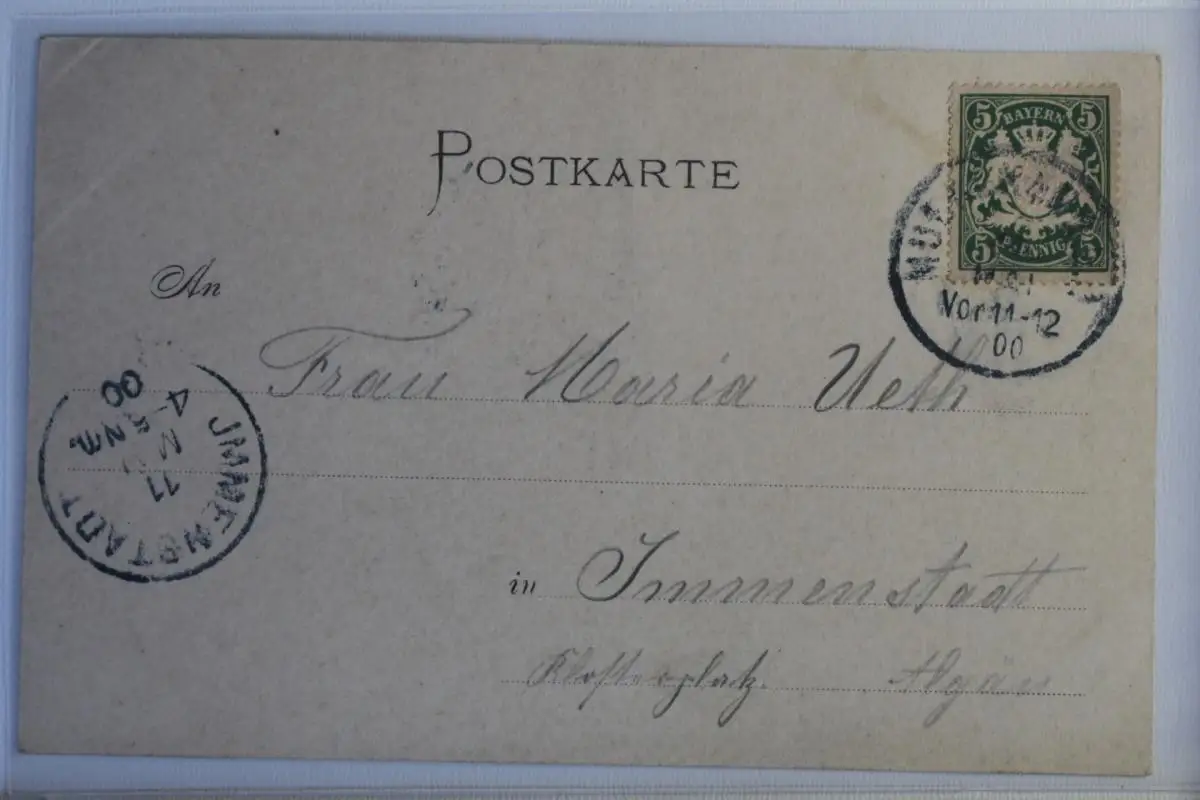 POSTKARTE
5 BAYERN 5
5 PFENNIG 5
Vor 11-12
00
An
Frau Maria Ueth
JMMENSTADT
11
4-5 Nm.
00
in Immenstadt
Klosterplatz. Algäu